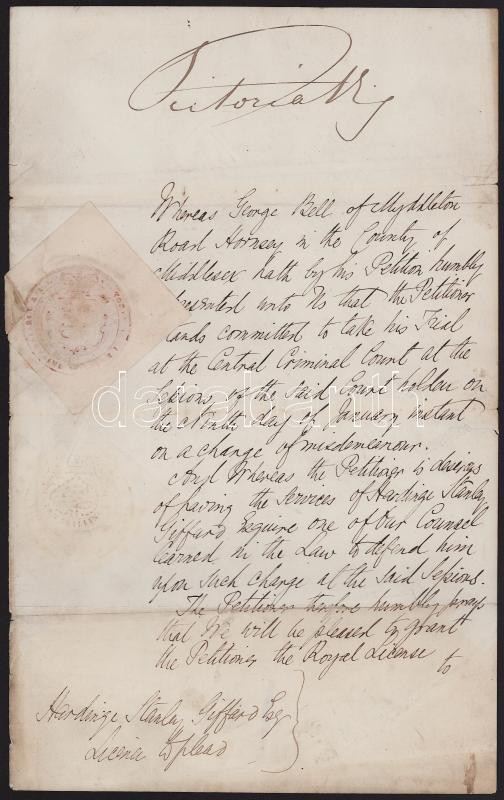 Victoria Rg
Whereas George Bell of Myddleton
Road Hornsey in the County of
Middlesex hath by his Petition humbly
presented unto Us that the Petitioner
stands committed to take his Trial
at the Central Criminal Court at the
Sessions of the said Court holden on
the Ninth day of January instant
on a charge of misdemeanour.
And Whereas the Petitioner is desirous
of having the Services of Hardinge Stanley
Giffard Esquire one of Our Counsel
learned in the Law to defend him
upon such charge at the said Sessions.
The Petitioner therefore humbly prays
that We will be pleased to grant
the Petitioner the Royal License
to
Hardinge Stanley Giffard Esq
Licence to plead
darabanth